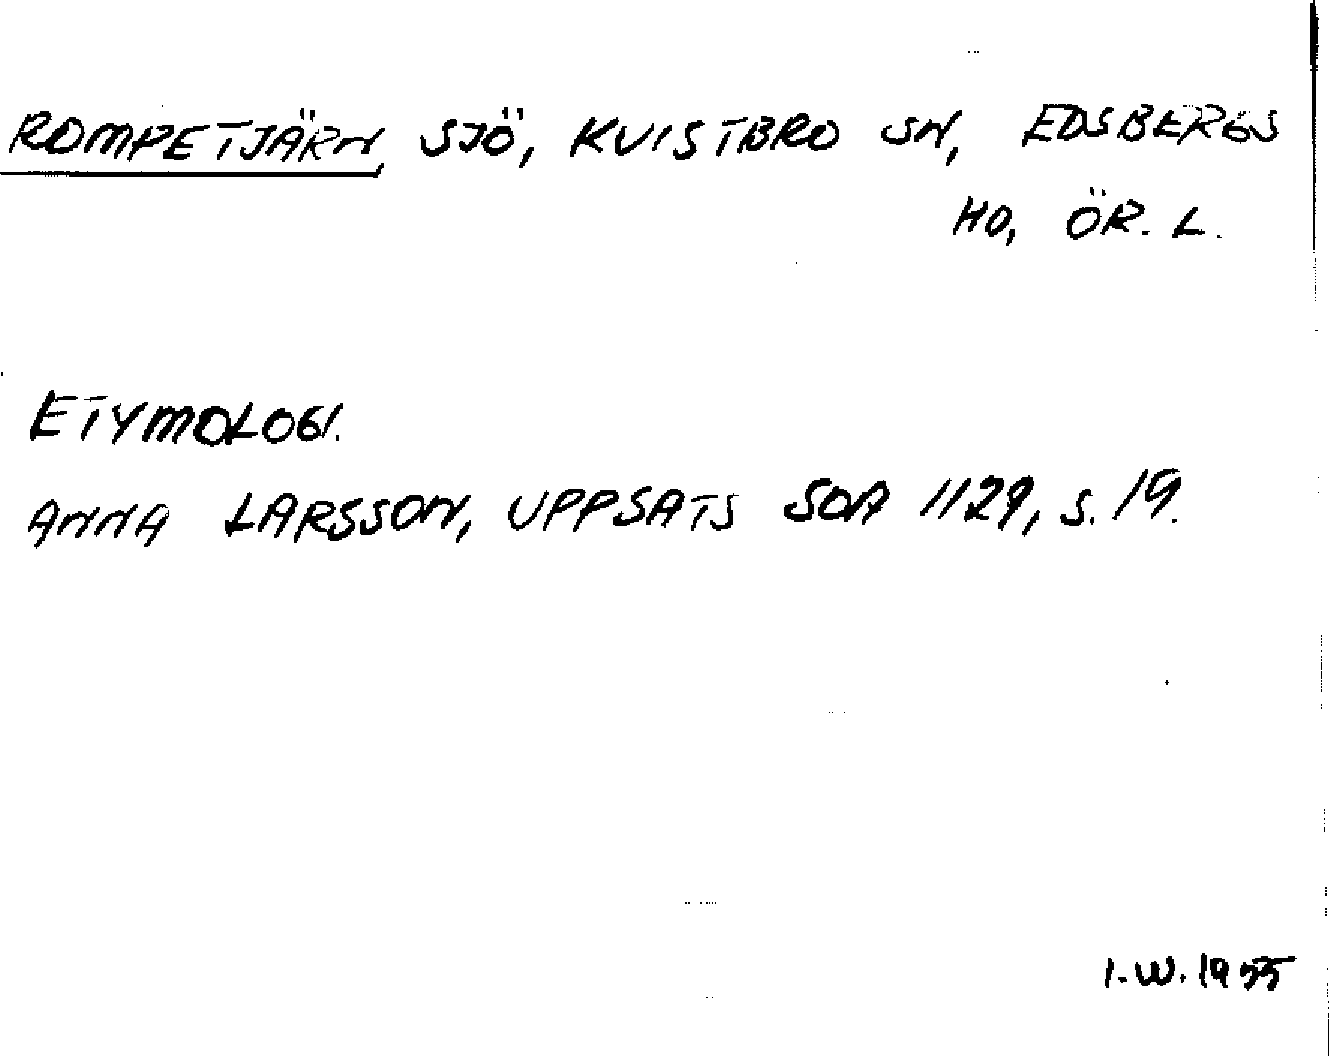 ROMPETJÄRN, SJÖ, KVISTBRO SN, EDSBERGS
HD, ÖR. L.
ETYMOLOGI.
ANNA LARSSON, UPPSATS SOA 1129, S. 19.
I.W. 1955